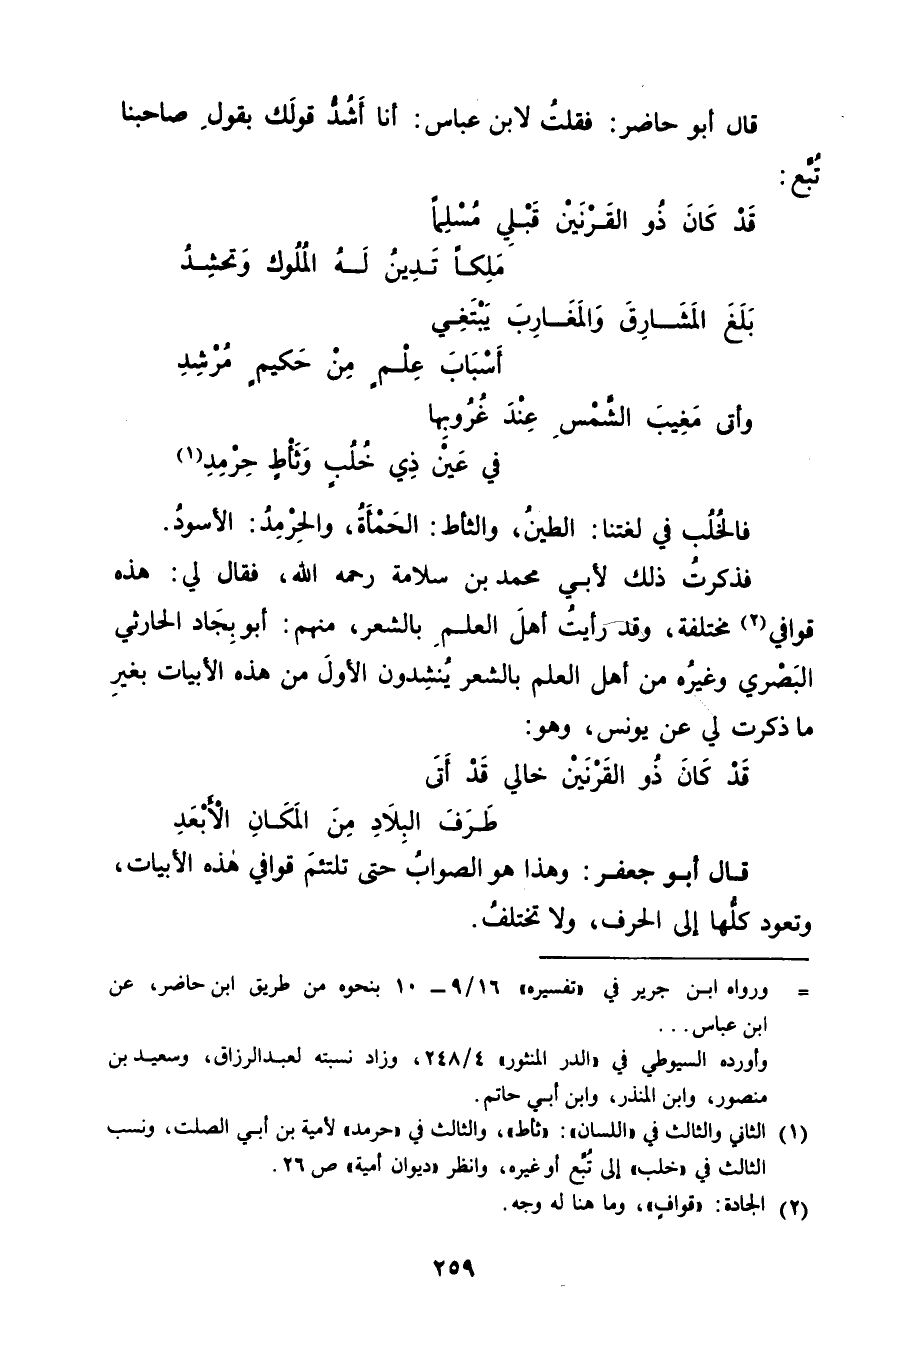 قال أبو حاضر: فقلتُ لابن عباس: أنا أَشُدُّ قولَك بقولِ صاحبنا
تُبَّع:
قَدْ كَانَ ذُو القَرْنَيْن قَبْلي مُسْلِماً
مَلِكاً تَدِينُ لَهُ المُلُوك وَتَحشِدُ
بَلَغَ المَشَارِقَ وَالمَغَارِبَ يَبْتَغِي
أَسْبَابَ عِلْمٍ مِنْ حَكيمٍ مُرْشِدِ
وأتى مَغِيبَ الشَّمْسِ عِنْدَ غُرُوبِها
في عَيْنٍ ذِي خُلُبٍ وَثَأْطٍ حِرْمِدِ(١)
فالخُلُب في لغتنا: الطينُ، والثأط: الحَمْأَةُ، والحِرْمِدُ: الأسودُ.
فذكرتُ ذلك لأبي محمد بن سلامة رحمه الله، فقال لي: هذه
قوافي(٢) مختلفة، وقد رأيتُ أهلَ العلمِ بالشعر، منهم: أبو بِجَاد الحارثي
البَصْري وغيرُه من أهل العلم بالشعر يُنشِدون الأولَ من هذه الأبيات بغيرِ
ما ذكرت لي عن يونس، وهو:
قَدْ كَانَ ذُو القَرْنَيْن خالي قَدْ أَتَى
طَرَفَ البِلَادِ مِنَ المَكَانِ الْأَبْعَدِ
قال أبو جعفر: وهذا هو الصوابُ حتى تلتئمَ قوافي هٰذه الأبيات،
وتعود كلُّها إلى الحرف، ولا تختلفُ.
= ورواه ابن جرير في «تفسيره» ٩/١٦ - ١٠ بنحوه من طريق ابن حاضر، عن
ابن عباس...
وأورده السيوطي في «الدر المنثور» ٢٤٨/٤، وزاد نسبته لعبدالرزاق، وسعيد بن
منصور، وابن المنذر، وابن أبي حاتم.
(١) الثاني والثالث في «اللسان»: «ثأط»، والثالث في «حرمد» لأمية بن أبي الصلت، ونسب
الثالث في «خلب» إلى تُبَّع أو غيره، وانظر «ديوان أمية» ص ٢٦.
(٢) الجادة: «قوافٍ»، وما هنا له وجه.
٢٥٩